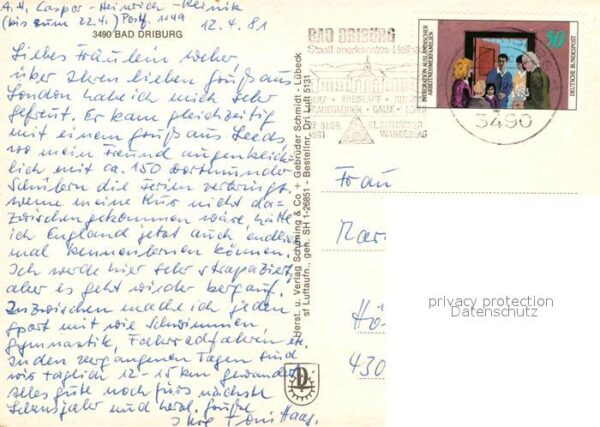 A. H. Caspar-Heinrich-Klinik
(bis zum 22.4.) Postf. 1149 12.4.81
3490 BAD DRIBURG
Liebes Fräulein
über Ihren lieben Gruß aus
London habe ich mich sehr
gefreut. Er kam gleichzeitig
mit einem Gruß aus Leeds,
wo mein Freund augenblick-
lich mit ca. 150 Dortmunder
Schülern die Ferien verbringt.
Wenn meine Kur nicht da-
zwischengekommen wäre, hätte
ich England jetzt auch endlich
mal kennenlernen können.
Ich werde hier sehr strapaziert,
aber es geht wieder bergauf.
Inzwischen mache ich jeden
Sport mit wie Schwimmen,
Gymnastik, Fahrradfahren etc.
In den vergangenen Tagen sind
wir täglich 12-15 km gewandert.
Alles Gute noch fürs nächste
Lebensjahr und herzl. Grüße
Ihre Toni Haag.
Herst. u. Verlag Schöning & Co + Gebrüder Schmidt - Lübeck
st Luftaufn., geh. SH 1-26851 - Bestellnr. Dri. Luft 5131
BAD DRIBURG
Staatl anerkanntes Heilbad
HERZ - KREISLAUF -
GALLE -
81. DEUTSCHER
1981 WANDERTAG
3490
INTEGRATION AUSLÄNDISCHER
ARBEITNEHMERFAMILIEN
50
DEUTSCHE BUNDESPOST
Frau
Mar
Hö
430
privacy protection
Datenschutz